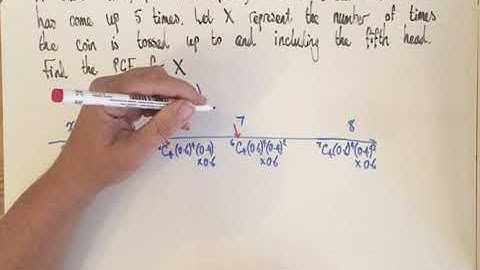 has come up 5 times. Let X represent the number of times
the coin is tossed up to and including the fifth head.
Find the PGF for X
7 8
C₄(0.6)⁴(0.4) ⁶C₄(0.6)⁴(0.4)² ⁷C₄(0.6)⁴(0.4)³
×0.6 ×0.6 ×0.6